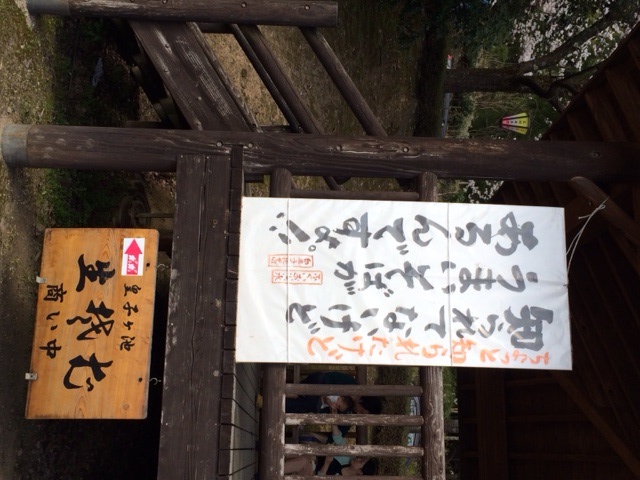 ちょっと知られたけど
知られてないけど
うまいそばが
あるんですよ。!
皇子ヶ池
生そば
商い中